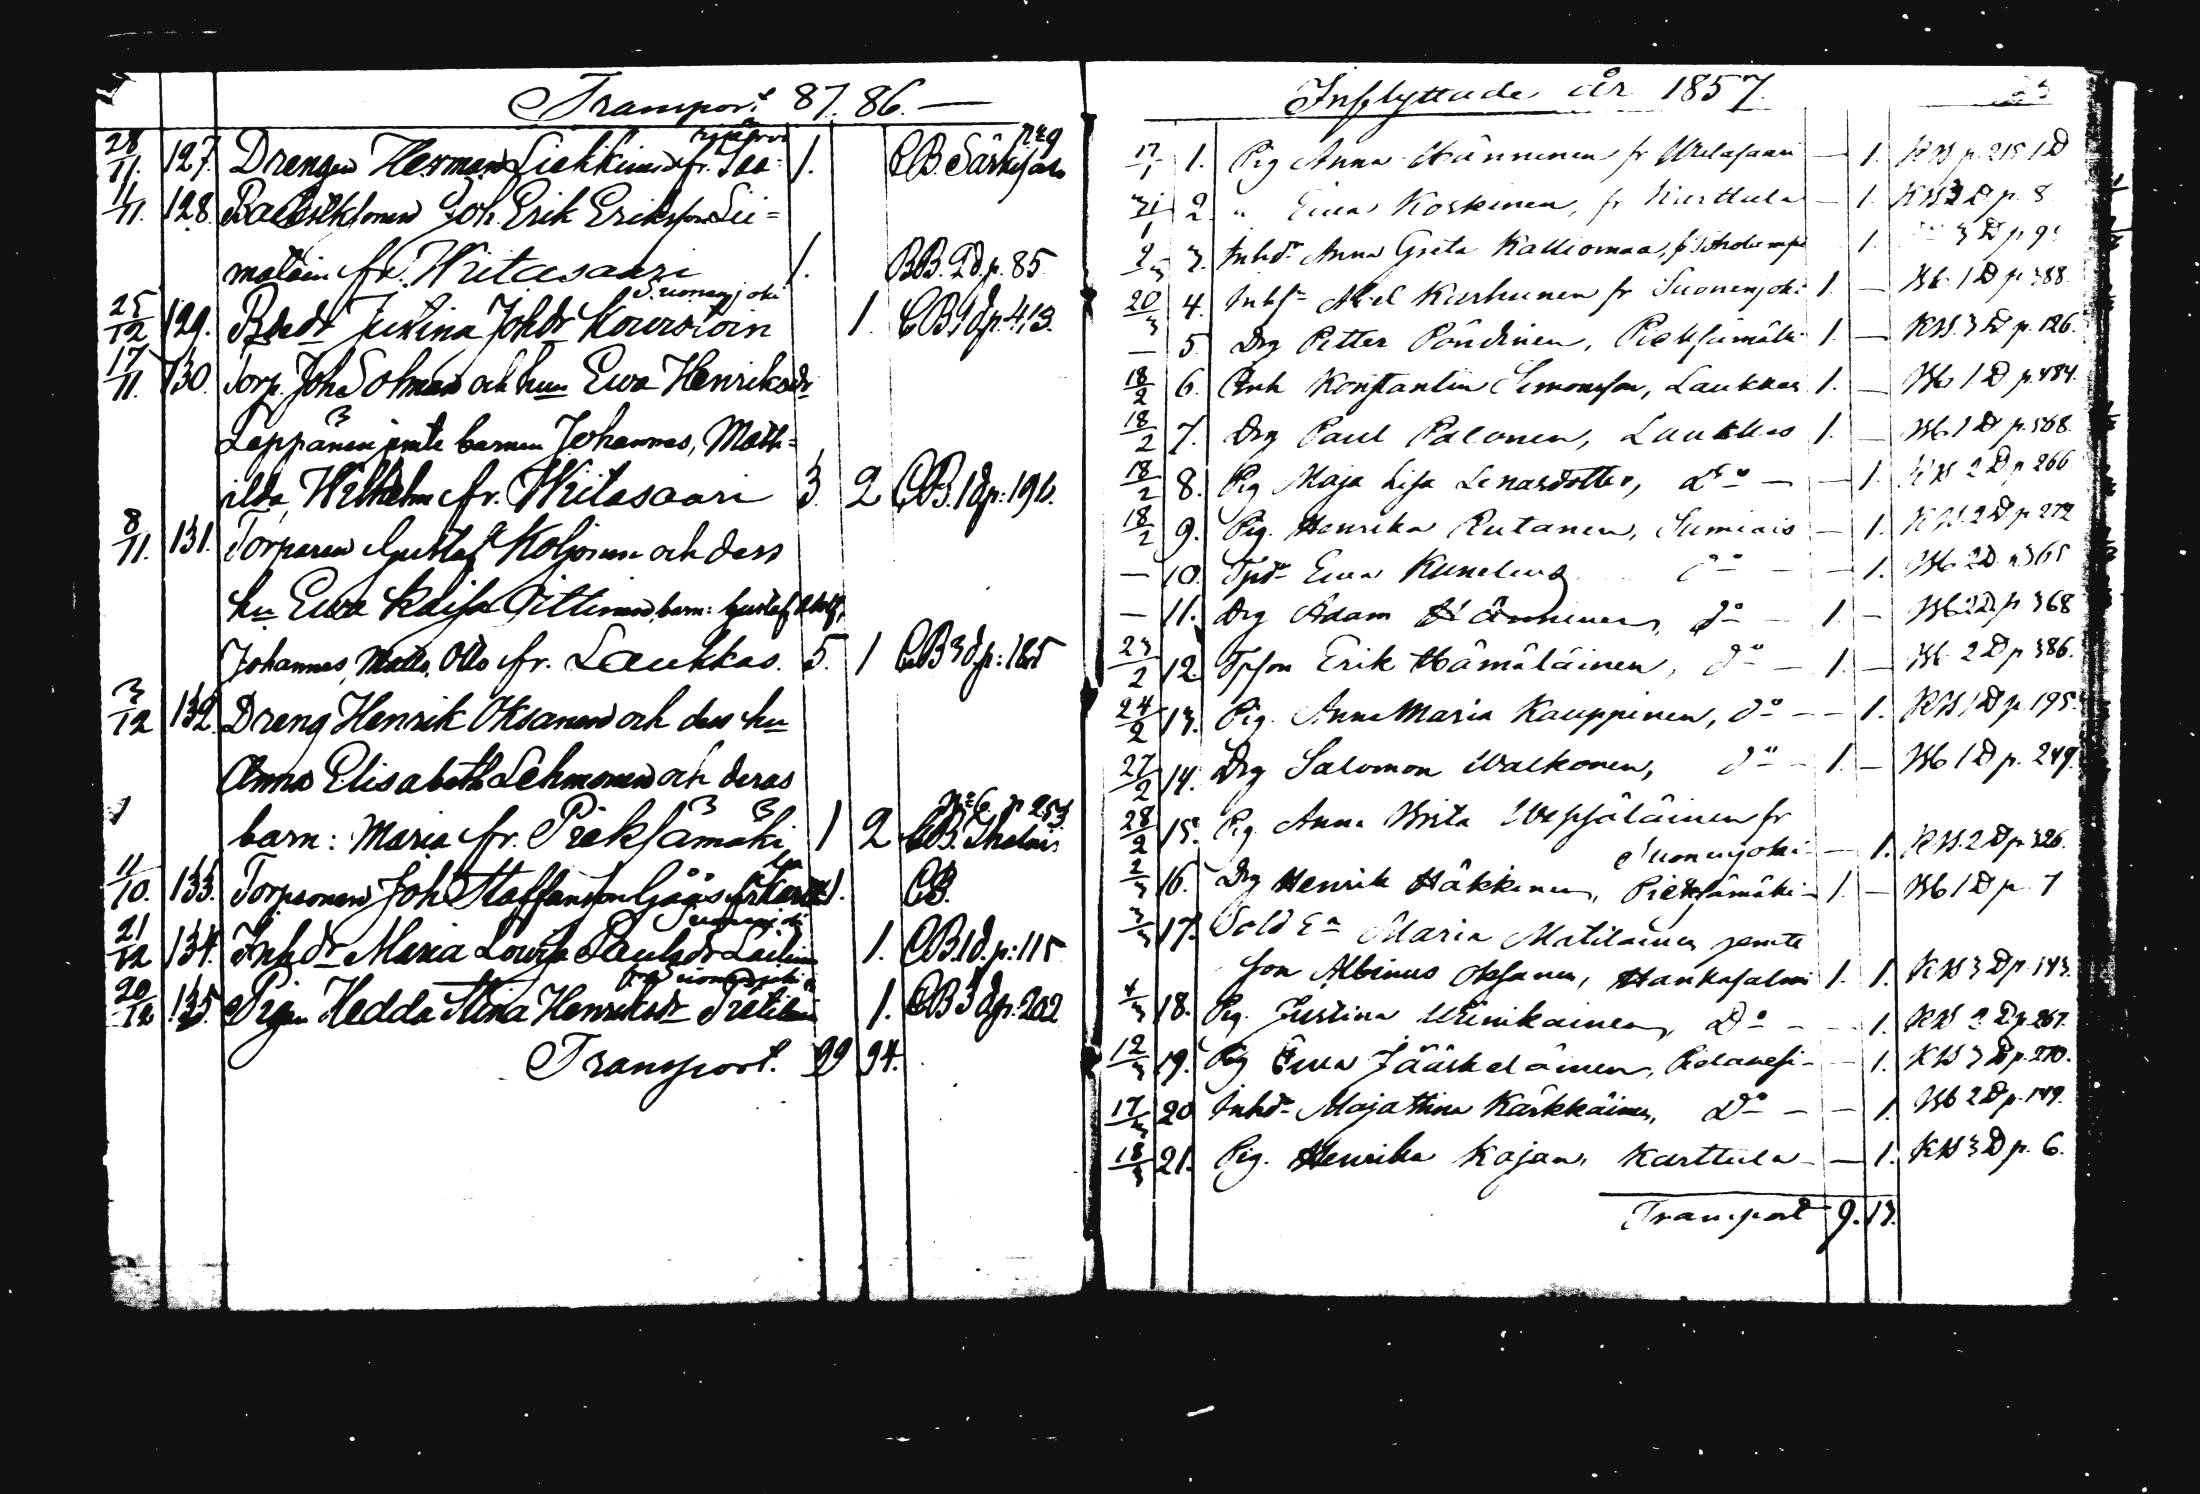 Transport 87. 86. —
28/11. 127. Drengen Herman Liehkinen fr. Saa= 1. CB. Särkisalo
11/11. 128. Joh. Erik Eriksson Lii=
matain fr. Witasaari 1. BB. 2d. p. 85
Suonenjoki
25/12 129. Justina Johdr 1. CB. 1d p. 413.
17/11. 130. Torp. Joh. Sohman och hu Ewa Henriksdr
Leppänen jemte barnen Johannes, Math=
ilda, Wilhelm fr. Witasaari 3. 2 CB. 1d p: 196.
8/11. 131. Torparen Gustaf Koljonen och dess
hu Ewa Kaisa Pittinen, barn: Gustaf Adolf,
Johannes, Matts, Otto fr. Laukkas. 5. 1 CB 3d. p: 185
3/12 132. Dreng Henrik Oksanen och dess hu
Anna Elisabeth Lehmonen och deras
No 6. p 253
barn: Maria fr. Pieksämäki 1 2 CB.
11/10. 133. Torpsonen Joh. Staffansson 1. CB.
Suonenjoki
21/12 134. Inh dr Maria Lovisa Paulsdr 1. CB 1d. p: 115
fr Suonenjoki
20/12 135. Pigan Hedda Stina Henriksdr 1. CB 3 dp. 202
Transport. 99 94.
Inflyttade år 1857
17/1 1. Pig Anna Hänninen fr Witasaari — 1. KB p. 215 1D
31/1 2. " Ewa Koskinen, fr Karttula — 1. KB 2 D p. 8
3. Inhdr Anna Greta Kalliomaa, 1. 3 D p 9
20/3 4. Inhs Karhunen fr Suonenjoki 1. — KB. 1 D p 388
— 5. Drg Petter Pöndinen, Pieksämäki 1. — KB. 3 D p. 126.
18/2 6. Inh Konstantin Simonsson, Laukkas 1. — KB 1 D p. 484.
18/2 7. Drg Paul Palonen, Laukkas 1. — KB. 1 D p. 568.
18/2 8. Pig Maja Lisa Lenardsdotter, Do — — 1. KB 2 D p. 266
18/2 9. Pig. Henrika Rutanen, Sumiais — 1. KB. 2 D p 272
— 10. Tpdr Ewa Kunelius do — — 1. KB. 2D p 365
— 11. Drg Adam Hänninen, do — 1. — KB 2D p. 368
23/2 12. Tpson Erik Hämäläinen, do — 1. — KB 2 D p 386.
24/2 13. Pig. Anna Maria Kauppinen, do — — 1. KB 1 D p 195.
27/2 14. Drg Salomon Walkonen, do — 1. — KB 1 D p. 249.
28/2 15. Pig. Anna Brita Wepsäläinen fr
Suonenjoki — — 1. KB. 2 D p 326.
2/3 16. Drg Henrik Häkkinen, Pieksämäki — 1. — KB 1 D p. 7
3/3 17. Sold Ea Maria Matilainen jemte
son Albinus Oksanen, Hankasalmi 1. 1. KB 3 D p. 143.
4/3 18. Pig. Justina Wänikainen, Do — — 1. KB 2 D p 267.
12/3 19. Pig Ewa Jääskeläinen, Pielavesi — — 1. KB 3 D p. 270.
17/3 20 Inhdr Maja Stina Kärkkäinen, Do — — 1. KB 2 D p. 149.
18/3 21. Pig. Henrika Kajan, Karttula — — 1. KB 3 D p. 6.
Transport 9. 13.